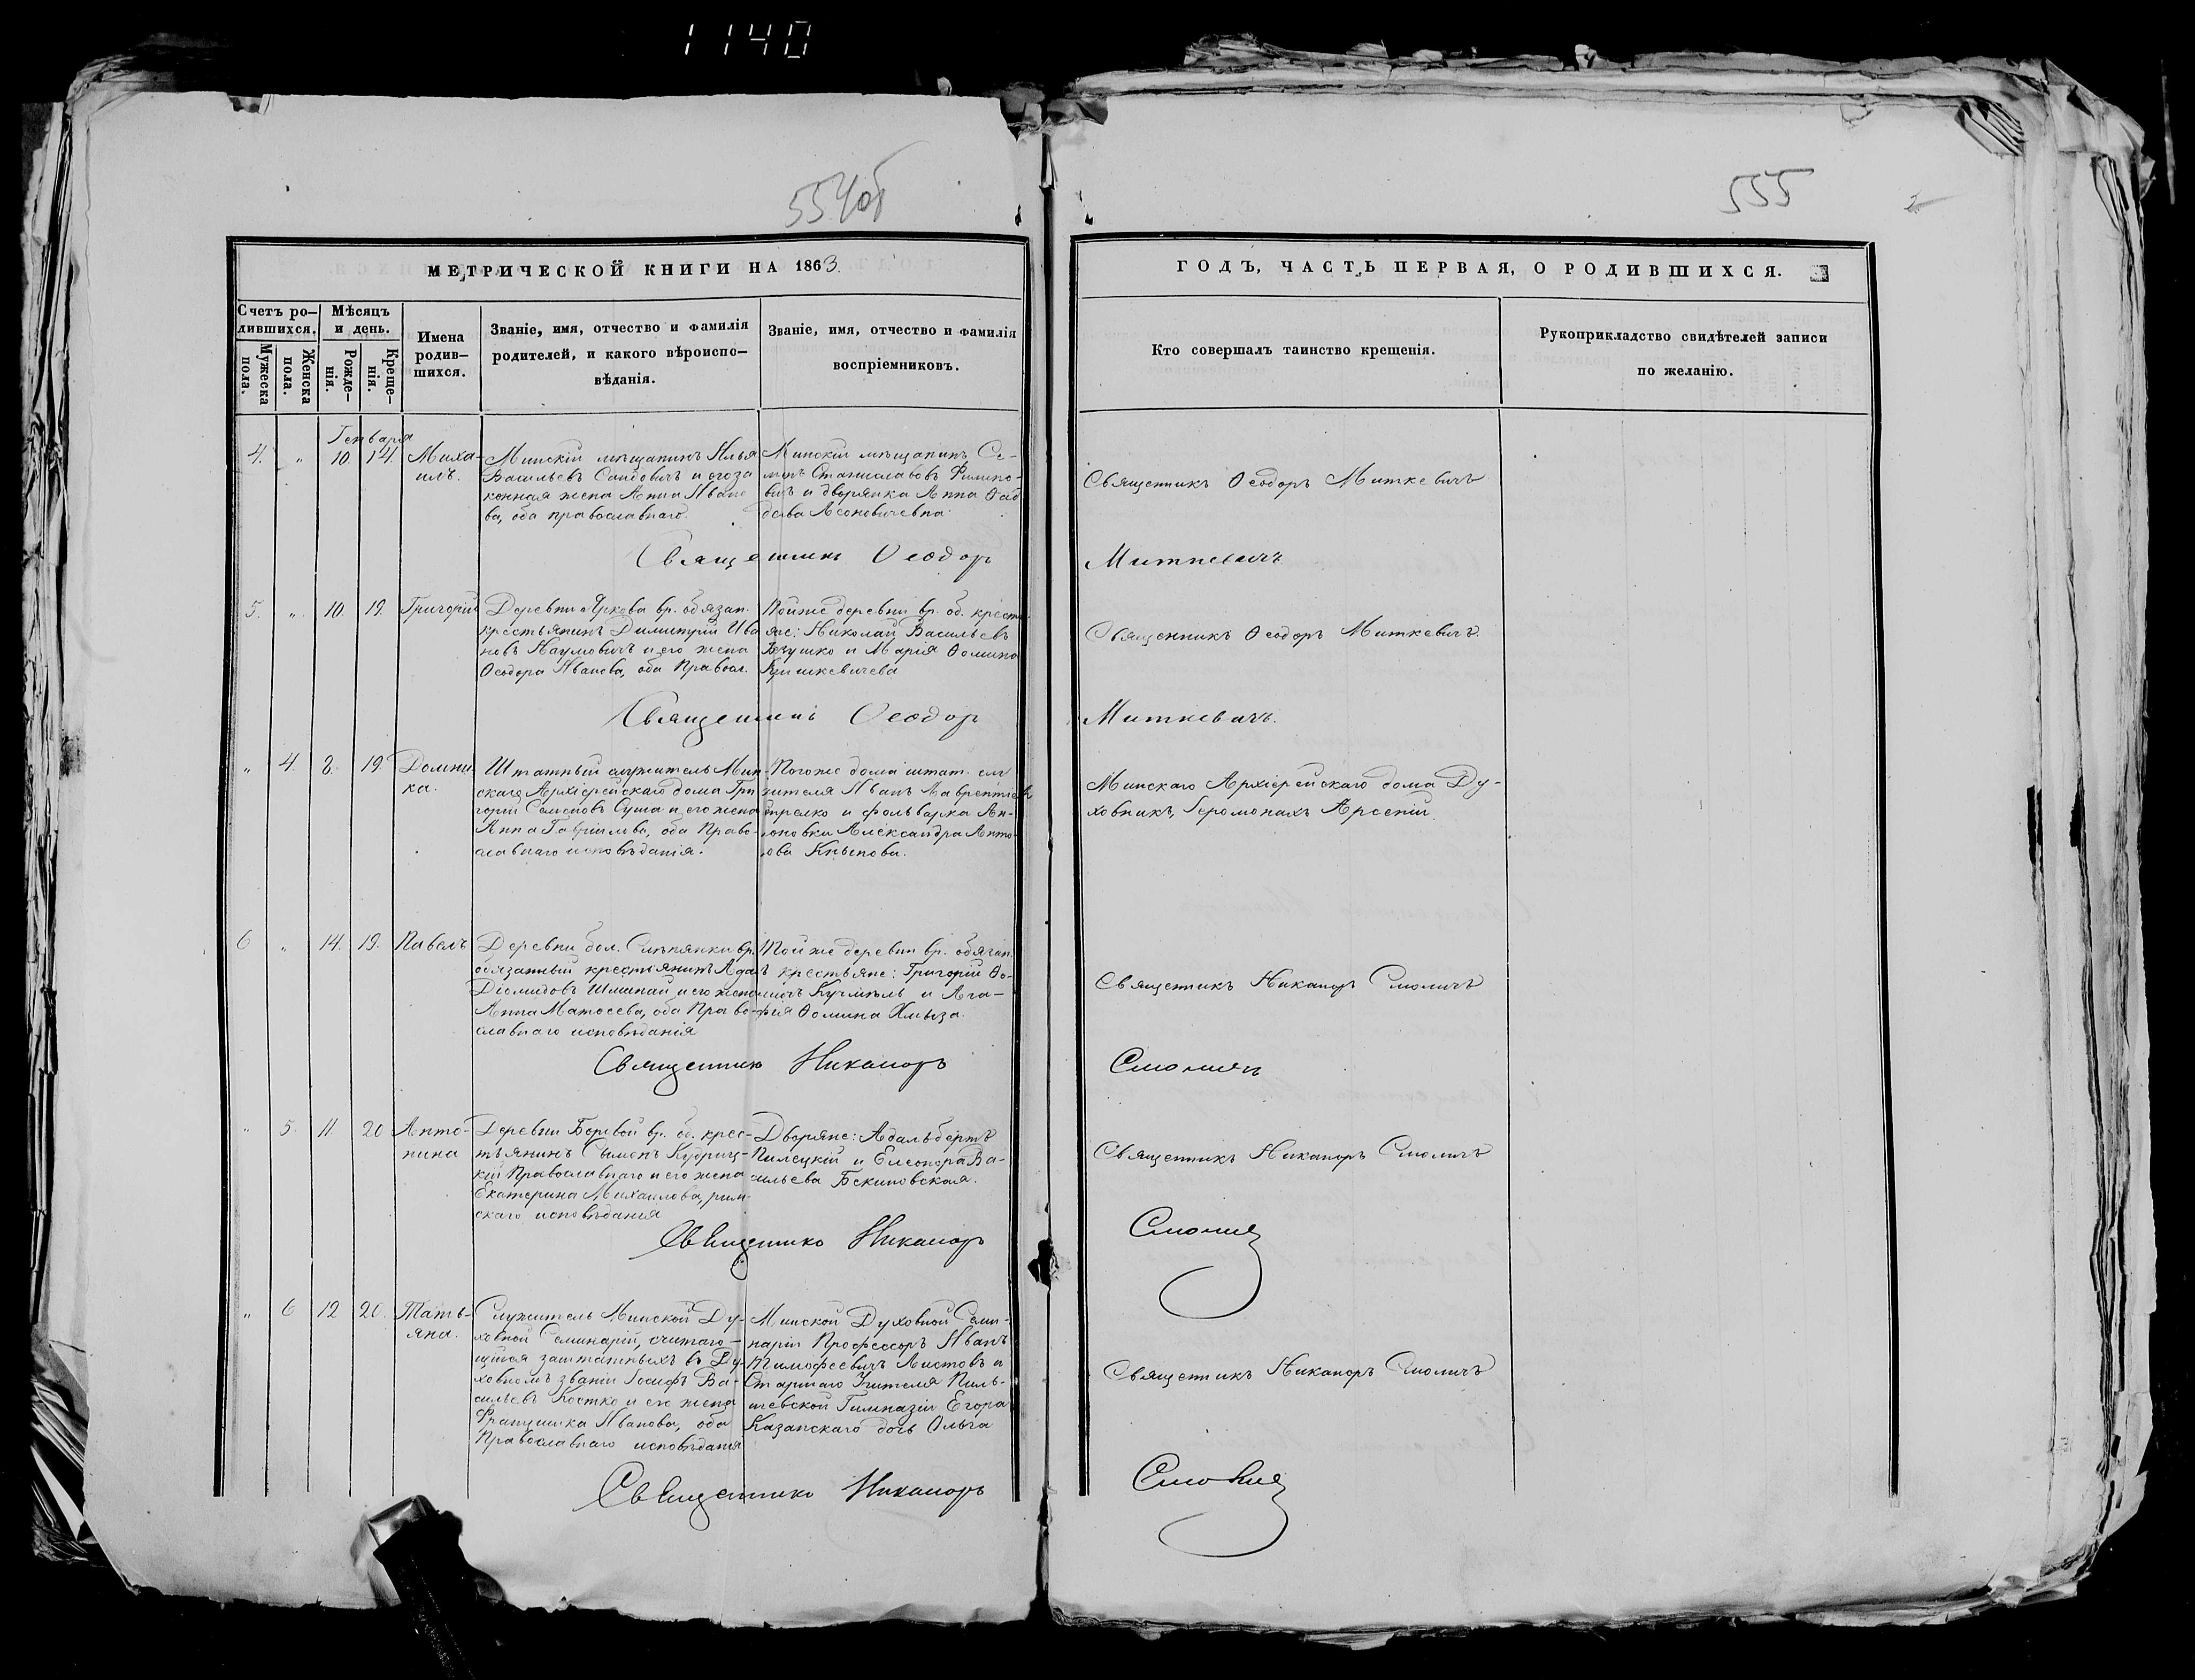 1140
554об
555
2
МЕТРИЧЕСКОЙ КНИГИ НА 1863.
Счетъ ро-
дившихся.
Мѣсяцъ
и день.
Мужеска
пола.
Женска
пола.
Рожде-
нія.
Креще-
нія.
Имена
родив-
шихся.
Званіе, имя, отчество и фамилія
родителей, и какого вѣроиспо-
вѣданія.
Званіе, имя, отчество и фамилія
воспріемниковъ.
ГОДЪ, ЧАСТЬ ПЕРВАЯ, О РОДИВШИХСЯ.
Кто совершалъ таинство крещенія.
Рукоприкладство свидѣтелей записи
по желанію.
Генваря
4. " 10. 14. Миха-
илъ.
Минскій мѣщанинъ Илья
Васильевъ и его за
конная жена Анна Ивано
ва, оба православнаго.
Минскій мѣщанинъ Се-
менъ Станиславовъ Филипо-
вичъ и дворянка Анна Фад
деева Леоновичевна.
Священникъ Ѳеодоръ Миткевичъ
Священникъ Ѳеодоръ
Миткевичъ
5. " 10. 19. Григорій
Деревни вр. обязан.
крестьянинъ Димитрій Ива
новъ Наумовичъ и его жена
Ѳеодора Иванова, оба Правосл.
Тойже деревни вр. об. кресть
яне: Николай Васильевъ
и Марія Ѳомина
Кришкевичева
Священникъ Ѳеодоръ Миткевичъ.
Священникъ Ѳеодоръ
Миткевичъ.
" 4. 8. 19. Домни-
ка.
Штатный служитель Мин
скаго Архіерейскаго дома Гри
горій Семеновъ Суша и его жена
Анна Гавріилова, оба Право-
славнаго исповѣданія.
Тогоже дома штат. слу
жителя Иванъ Лаврентіевъ
и фольварка Ан-
тоновки Александра Анто-
нова
Минскаго Архіерейскаго дома Ду-
ховникъ, Іеромонахъ Арсеній.
6 " 14. 19. Павелъ
Деревни бол. Слѣпянки вр.
обязанный крестьянинъ Адамъ
Діомидовъ и его жена
Анна Матѳеева, оба Право-
славнаго исповѣданія
Тойже деревни вр. обязан.
крестьяне: Григорій Ѳо-
минъ Кучмѣль и Ага-
фія Ѳомина Хмыза.
Священникъ Никаноръ Смоличъ
Священникъ Никаноръ
Смоличъ
" 5. 11. 20 Анто-
нина
Деревни Боровой вр. об. крес-
тьянинъ Сѵмеонъ Кудриц-
кій Православнаго и его жена
Екатерина Михаилова, рим-
скаго исповѣданія
Дворяне: Адальбертъ
Пилецкій и Елеонора Ва-
сильева
Священникъ Никаноръ Смоличъ
Священникъ Никаноръ
Смоличъ
" 6 12 20. Тать-
яна.
Служитель Минской Ду-
ховной Семинаріи, считаю-
щійся заштатныхъ въ Ду-
ховномъ званіи Іосифъ Ва-
сильевъ Костко и его жена
Францишка Иванова, оба
Православнаго исповѣданія
Минской Духовной Семи-
наріи Профессоръ Иванъ
Тимофеевичъ Листовъ и
Старшаго Учителя
Гимназіи Егора
Казанскаго дочь Ольга
Священникъ Никаноръ Смоличъ
Священникъ Никаноръ
Смоличъ